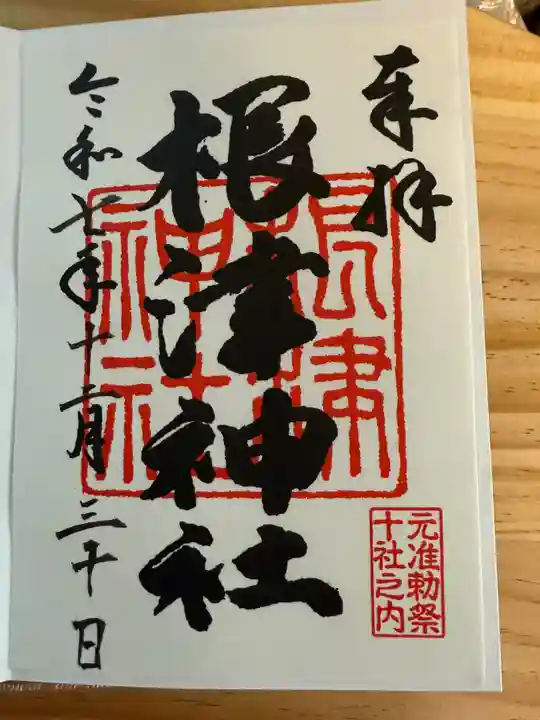 奉拝
根津神社
根津
神社
元准勅祭
十社之内
令和七年十二月三十日